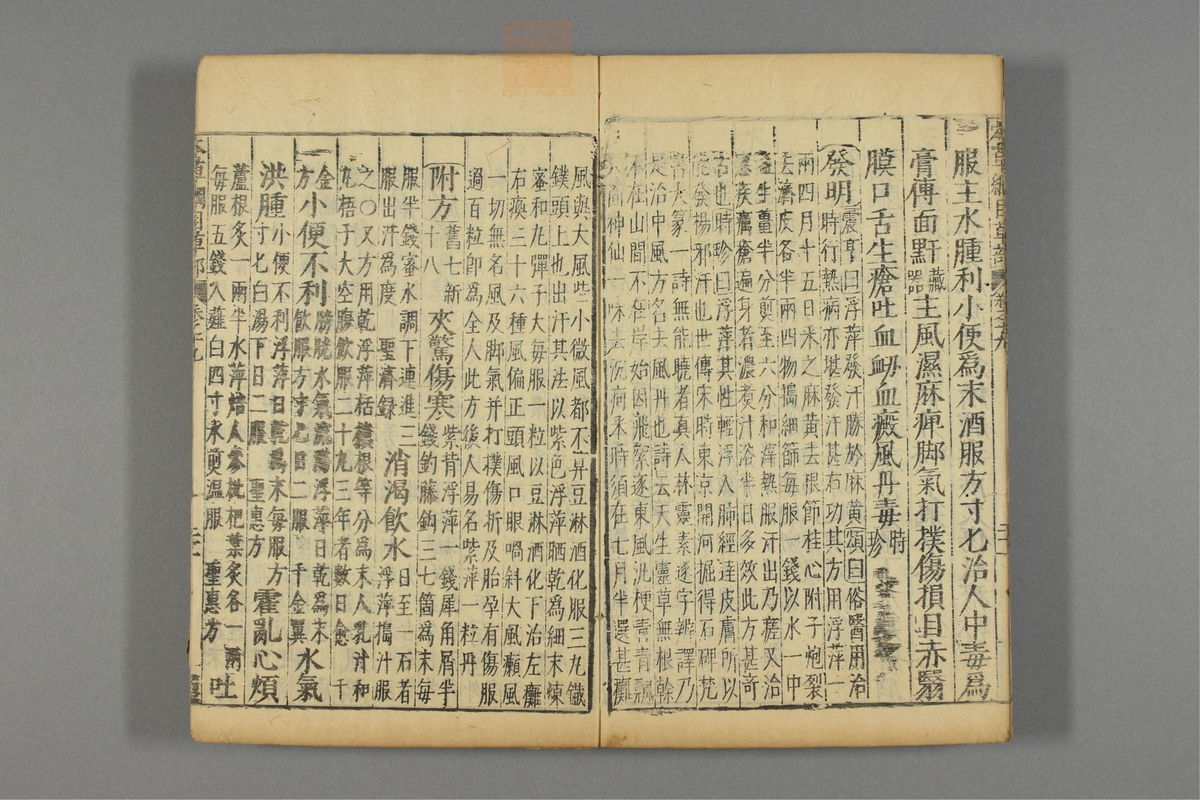 本草綱目草部 卷之十九
服主水腫利小便爲末酒服方寸匕治人中毒爲
膏傅面䵟藏器主風濕麻痺脚氣打撲傷損目赤翳
膜口舌生瘡吐血衂血癜風丹毒時珍
發明震亨曰浮萍發汗勝於麻黃頌曰俗醫用治
時行熱病亦堪發汗甚有功其方用浮萍一
兩四月十五日采之麻黃去根節桂心附子炮裂
去臍皮各半兩四物搗細篩每服一錢以水一中
盞生薑半分煎至六分和滓熱服汗出乃瘥又治
惡疾癘瘡遍身者濃煮汁浴半日多效此方甚奇
古也時珍曰浮萍其性輕浮入肺經達皮膚所以
能發揚邪汗也世傳宋時東京開河掘得石碑梵
書大篆一詩無能曉者真人林靈素逐字辨譯乃
是治中風方名去風丹也詩云天生靈草無根幹
不在山間不在岸始因飛絮逐東風汎梗青青飄
水面神仙一味去沉疴采時須在七月半選甚癱
風與大風些小微風都不筭豆淋酒化服三九鐵
鏷頭上也出汗其法以紫色浮萍晒乾爲細末煉
蜜和丸彈子大每服一粒以豆淋酒化下治左癱
右瘓三十六種風偏正頭風口眼喎斜大風癩風
一切無名風及脚氣并打撲傷折及胎孕有傷服
過百粒即爲全人此方後人易名紫萍一粒丹
附方舊七新十八 夾驚傷寒紫背浮萍一錢犀角屑半錢釣藤鈎三七箇爲末每
服半錢蜜水調下連進三服出汗爲度 聖濟錄 消渴飲水日至一石者浮萍搗汁服
之〇又方用乾浮萍栝樓根等分爲末人乳汁和丸梧子大空腹飲服二十丸三年者數日愈 千
金方 小便不利膀胱水氣流滯浮萍日乾爲末飲服方寸匕日二服 千金翼 水氣
洪腫小便不利浮萍日乾爲末每服方寸匕白湯下日二服 聖惠方 霍亂心煩
蘆根炙一兩半水萍焙人參枇杷葉炙各一兩每服五錢入薤白四寸水煎溫服 聖惠方 吐
本草綱目草部 卷之十九